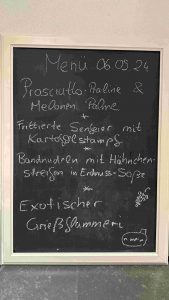 Menü 06.09.24
Prosciutto-Praline &
Melonen Palme
+
Frittierte Senfeier mit
Kartoffelstampf
*
Bandnudeln mit Hähnchen-
streifen in Erdnuss-Soße
*
Exotischer
Grießflammeri